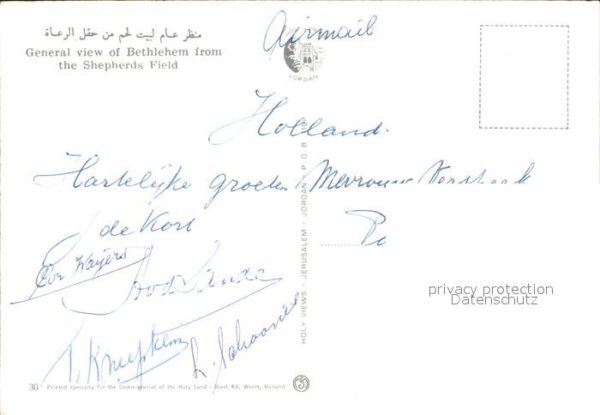 منظر عام لبيت لحم من حقل الرعاة
General view of Bethlehem from
the Shepherds Field
Airmail
JORDAN
Holland.
Hartelijke groeten
Mevrouw
de Kort
Cor Weijers
T. Kneepkens
L. Schoonen
HOLY VIEWS - JERUSALEM - JORDAN - P O B
privacy protection
Datenschutz
30
Printed specialty for the Commissariat of the Holy Land - Biest 43, Weert, Holland